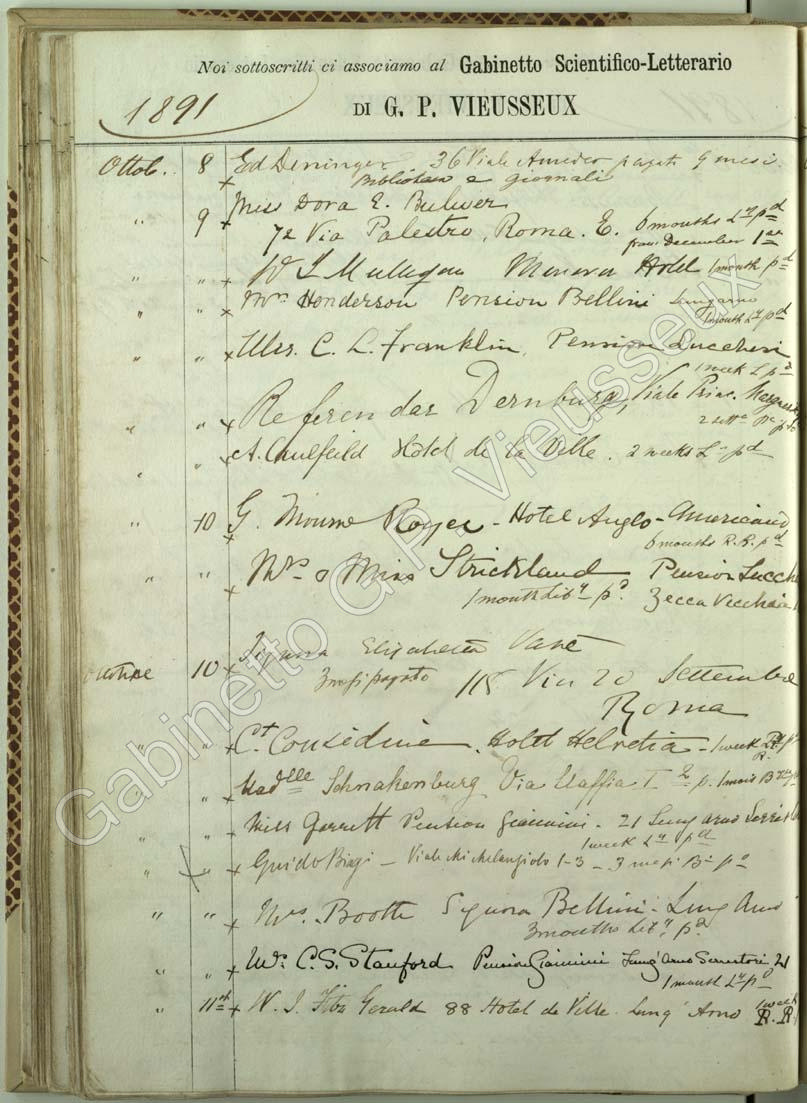 Noi sottoscritti ci associamo al Gabinetto Scientifico-Letterario
1891
DI G. P. VIEUSSEUX
Ottob. 8 x Ed Deninger 36 Viale Amedeo pagati 9 mesi
Biblioteca e giornali
" 9 x Miss Dora E. Bulwer
72 Via Palestro, Roma. E. 6 months Ly pd
from December 1st
" " x W J Mulligan Minerva Hotel 1 month pd
" " x Mrs Henderson Pension Bellini Lungarno
1 month Ly pd
" " x Mrs. C. L. Franklin, Pension Lucchesi
1 week L pd
" " x Referendar Dernburg, Viale Princ. Margherita
2 sett
" " x A. Caulfeild Hotel de la Ville. 2 weeks Ly pd
" 10 x G. Mourne Royer - Hotel Anglo-Americano
6 months R.R. pd
" " x Mrs & Miss Strickland Pension Lucche
1 month Liby pd. Zecca Vecchia
Ottobre 10 x Signora Elisabetta Vane
3 mesi pagato 118 Via 20 Settembre
Roma
" " x Ct. Considine. Hotel Helvetia - 1 week
R.
" " x Madlle Schnakenburg Via Maffia 1 p. 1 mois
" " x Miss Garrett Pension Giannini - 21 Lung Arno Serris
1 week Ly pd
" " x Guido Biagi - Viale Michelangiolo 1-3 - 3 mesi Bi po
" " x Mrs. Booth Signora Bellini - Lung Arno
3 months Liby pd
" " x Mr. C. S. Stanford Pension Giannini Lung'Arno Serristori 21
1 month Ly pd
" 11th x W. J. Fitz Gerald 88 Hotel de Ville. Lung' Arno 1 week
R. R.
Gabinetto G. P. Vieusseux